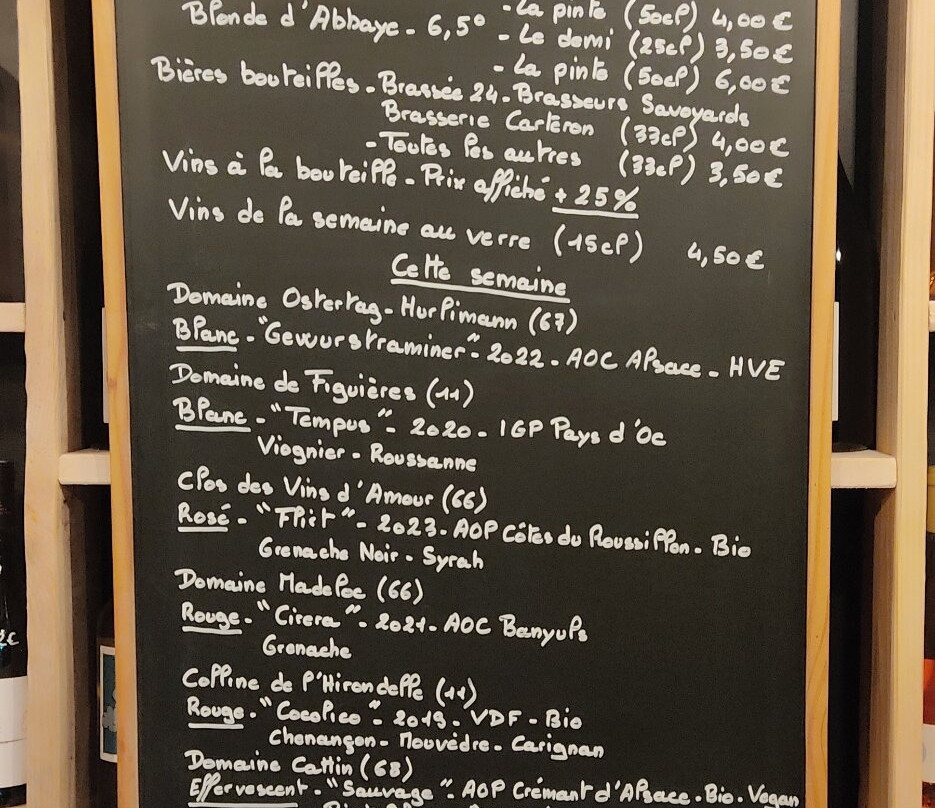 - La pinte (50cl) 4,00€
Blonde d'Abbaye - 6,5° - Le demi (25cl) 3,50€
- La pinte (50cl) 6,00€
Bières bouteilles - Brassée 24 - Brasseurs Savoyards
Brasserie Carteron (33cl) 4,00€
- Toutes les autres (33cl) 3,50€
Vins à la bouteille - Prix affiché + 25%
Vins de la semaine au verre (15cl) 4,50€
Cette semaine
Domaine Ostertag - Hurlimann (67)
Blanc - "Gewurstraminer" - 2022 - AOC Alsace - HVE
Domaine de Figuières (11)
Blanc - "Tempus" - 2020 - IGP Pays d'Oc
Viognier - Roussanne
Clos des Vins d'Amour (66)
Rosé - "Flirt" - 2023 - AOP Côtes du Roussillon - Bio
Grenache Noir - Syrah
Domaine Madeloc (66)
Rouge - "Cirera" - 2021 - AOC Banyuls
Grenache
Colline de l'Hirondelle (11)
Rouge - "Cocolico" - 2019 - VDF - Bio
Chenançon - Mouvèdre - Carignan
Domaine Cattin (68)
Effervescent - "Sauvage" - AOP Crémant d'Alsace - Bio - Vegan